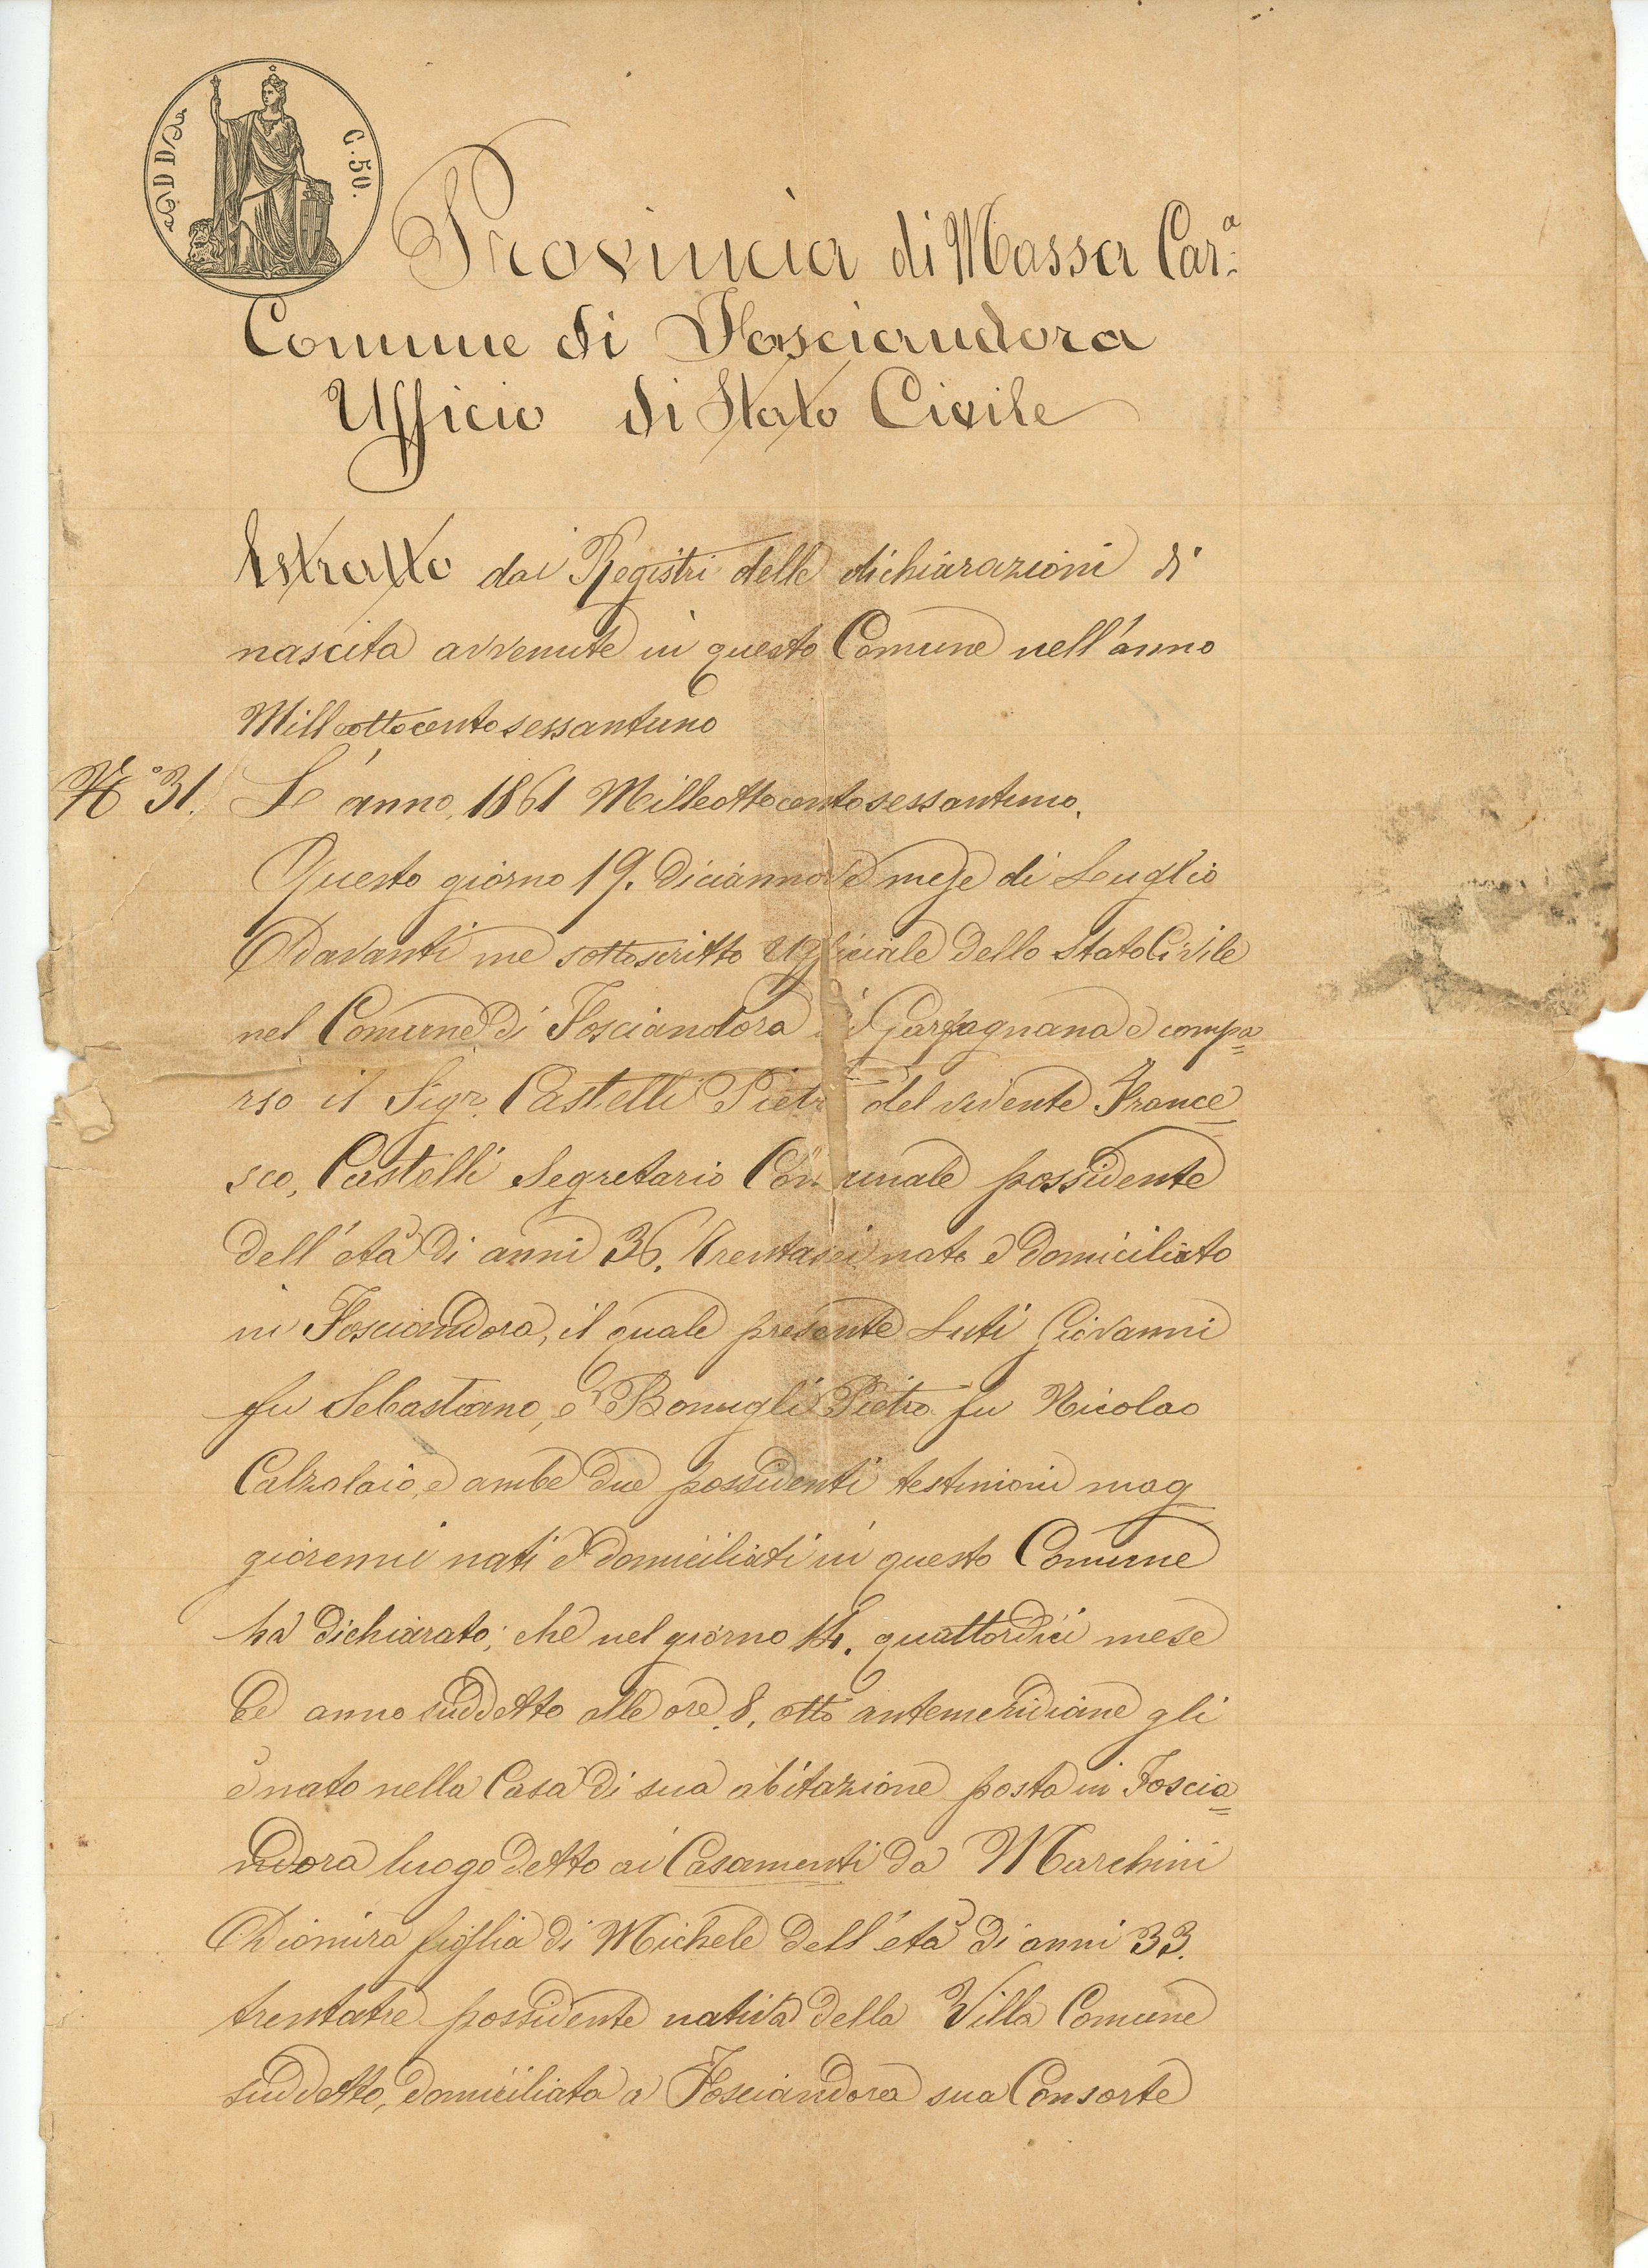 DD
C. 50.
Provincia di Massa Car.ª
Comune di Fosciandora
Ufficio di Stato Civile
Estratto dai Registri delle dichiarazioni di
nascita avvenute in questo Comune nell'anno
Milleottocentosessantuno
N.° 31. L'anno, 1861 Milleottocentosessantuno.
Questo giorno 19. diciannove mese di Luglio
Davanti me sottoscritto Ufficiale dello Stato Civile
nel Comune di Fosciandora di Garfagnana è compa=
rso il Sigr. Castelli Pietro del vivente France=
sco, Castelli Segretario Comunale possidente
dell'età di anni 36. Trentasei nato e domiciliato
in Fosciandora, il quale presente Luti Giovanni
fu Sebastiano, e Bonugli Pietro fu Nicolao
Calzolaio, e ambe due possidenti testimoni mag
giorenni nati e domiciliati in questo Comune
ha dichiarato; che nel giorno 14. quattordici mese
ed anno suddetto alle ore 8. otto antemeridiane gli
è nato nella Casa di sua abitazione posta in Foscia=
ndora luogo detto ai Casamenti da Marchini
Dionira figlia di Michele dell'età di anni 33.
trentatre possidente nativa della Villa Comune
suddetto, domiciliata a Fosciandora sua Consorte